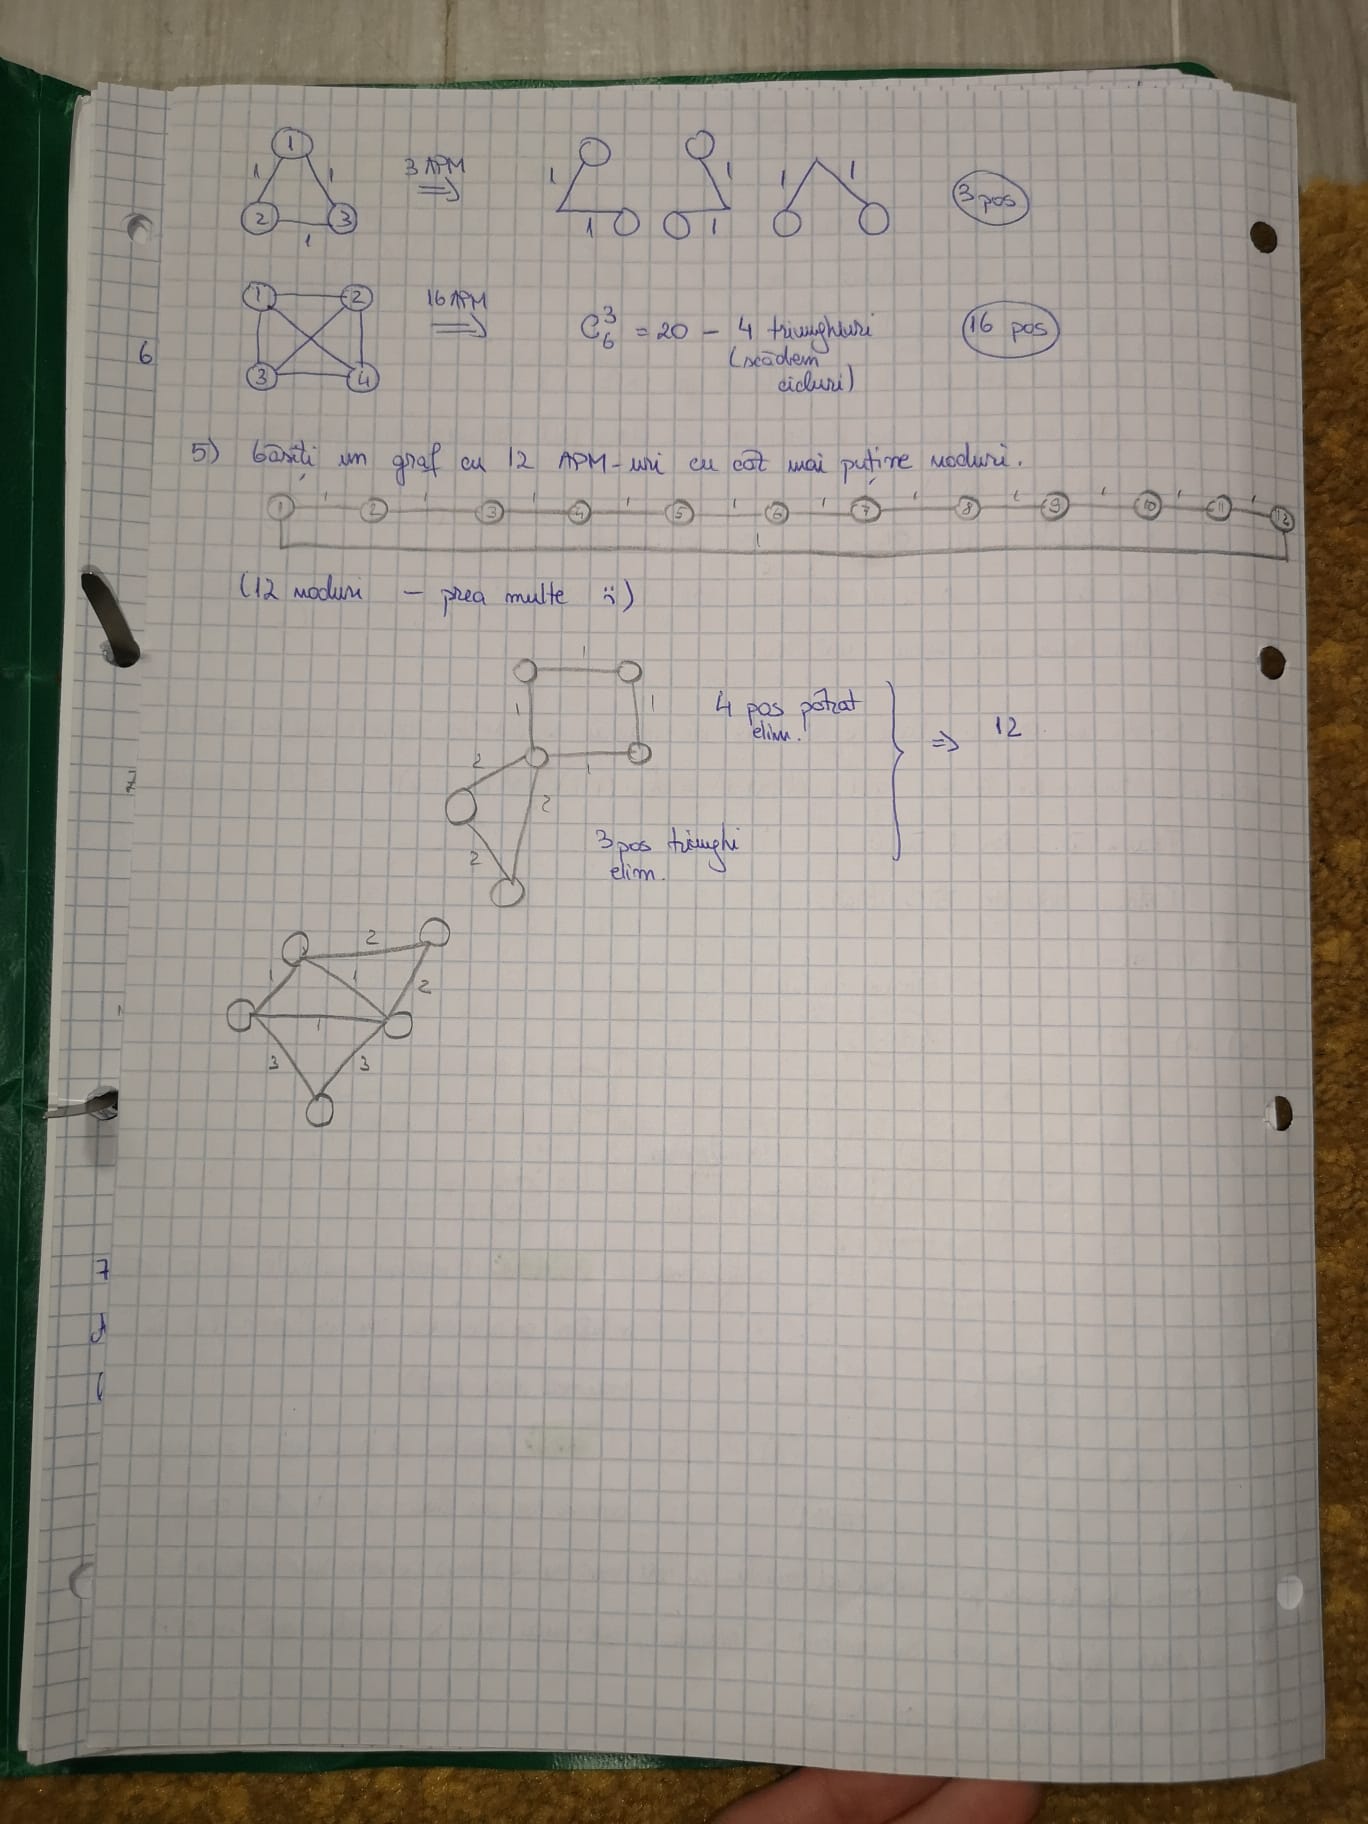 1
1 1
2 3
1
3 APM
=>
1 1
1 1
1 1
3 pos
1 2
3 4
16 APM
=>
C₆³ = 20 - 4 triunghiuri
(scădem
cicluri)
16 pos
6
5) Găsiți un graf cu 12 APM-uri cu cât mai puține noduri.
1 1 1 1 1 1 1 1 1 1 1
1 2 3 4 5 6 7 8 9 10 11 12
1
(12 noduri - prea multe :()
1
1 1
1
2 2
2
4 pos pătrat
elim.
3 pos triunghi
elim.
=> 12
2
1 1 2
1
3 3
7